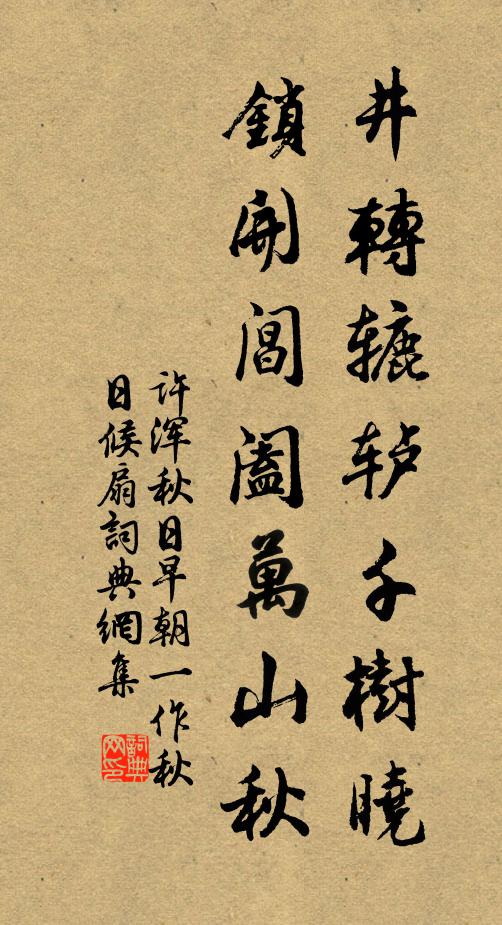 井轉辘轳千樹曉
鎖開閶闔萬山秋
许浑秋日早朝一作秋
日候扇詞典網集
詞典網印